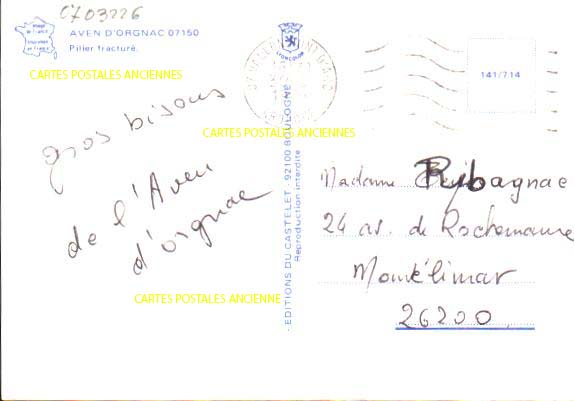 C703226
Image de France
AVEN D'ORGNAC 07150
Pilier fracturé.
CARTES POSTALES ANCIENNES
LION COLOR
141/714
gros bisous
CARTES POSTALES ANCIENNES
de l'Aven
d'orgnac
CARTES POSTALES ANCIENNE
- EDITIONS DU CASTELET - 92100 BOULOGNE
Reproduction interdite
Madame Ribagnac
24 av. de Rochemaure
Montélimar
26200